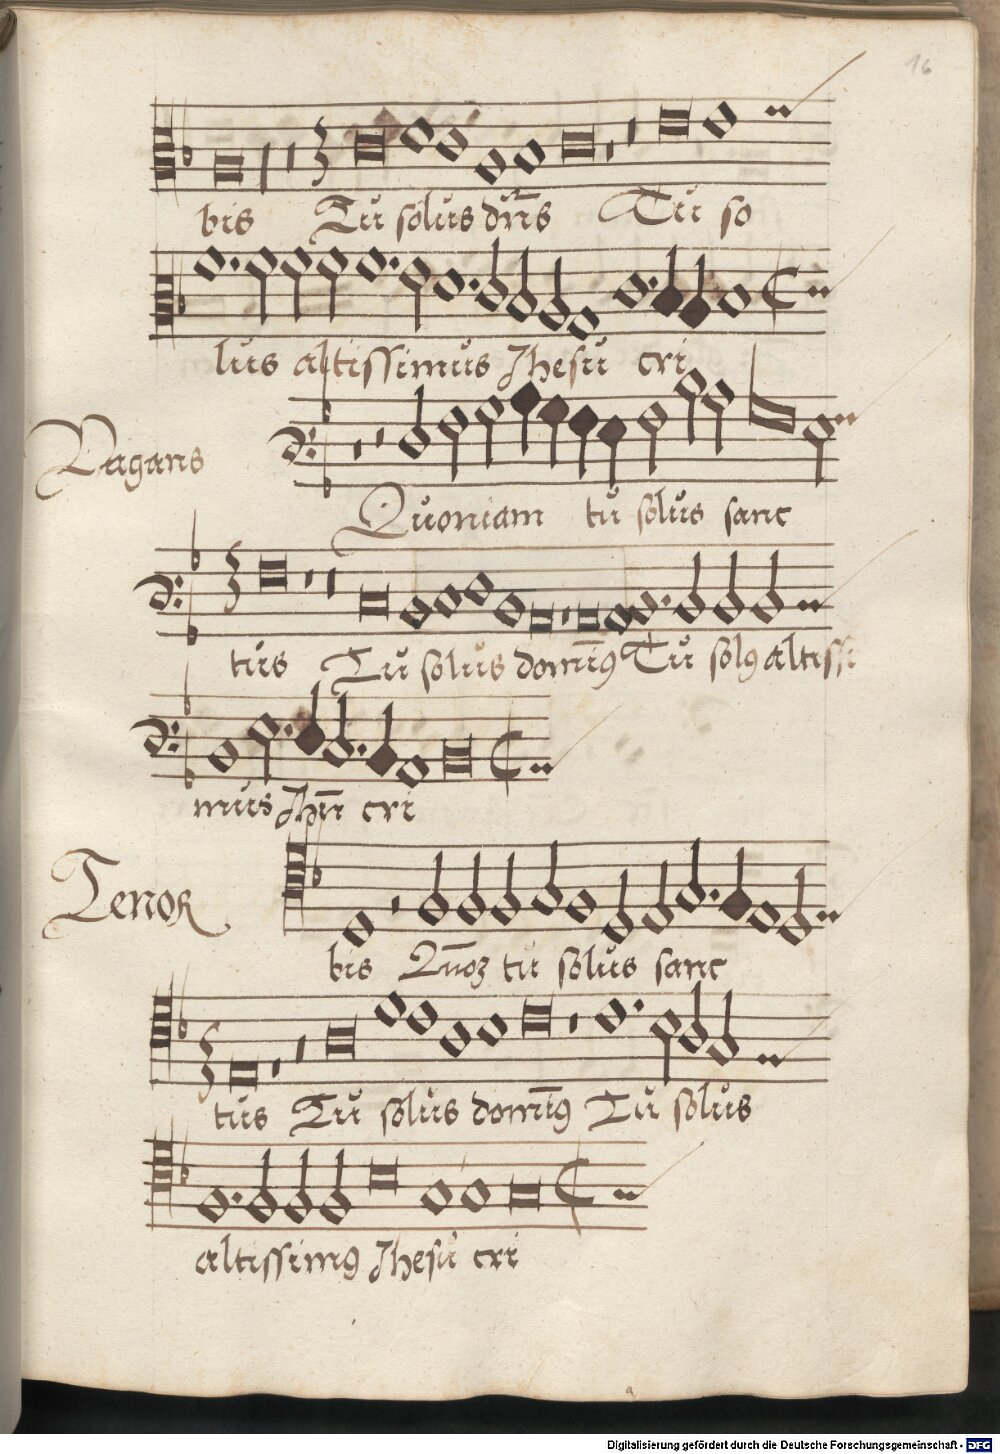 16
bis Tu solus dn̄s Tu so
lus altissimus Jhesu cri
Vagans
Quoniam tu solus sanc
tus Tu solus domīꝯ Tu solꝯ altissi
mus Jhū cri
Tenor
bis Qm̄oꝫ tu solus sanc
tus Tu solus domīꝯ Tu solus
altissimꝯ Jhesu cri
Digitalisierung gefördert durch die Deutsche Forschungsgemeinschaft - DFG